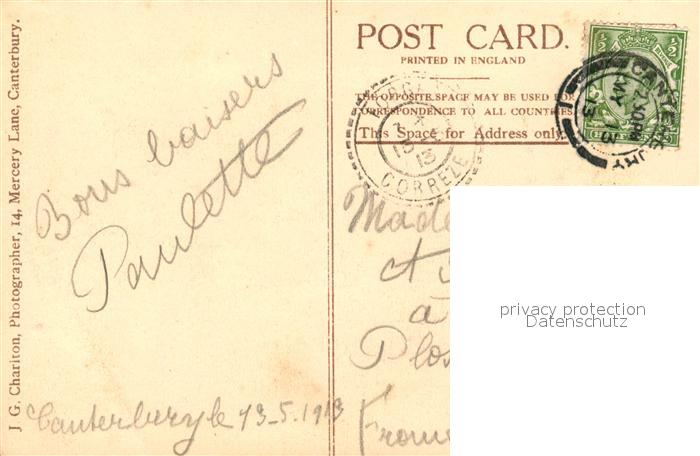 J. G. Charlton, Photographer, 14, Mercery Lane, Canterbury.
Bons baisers
Paulette
Canterbury le 13-5.1913
POST CARD.
PRINTED IN ENGLAND
THE OPPOSITE SPACE MAY BE USED
CORRESPONDENCE TO ALL COUNTRIES
This Space for Address only
CORREZE
15
13
CANTE
MY
13
½
½
Made
et
à
Plos
privacy protection
Datenschutz